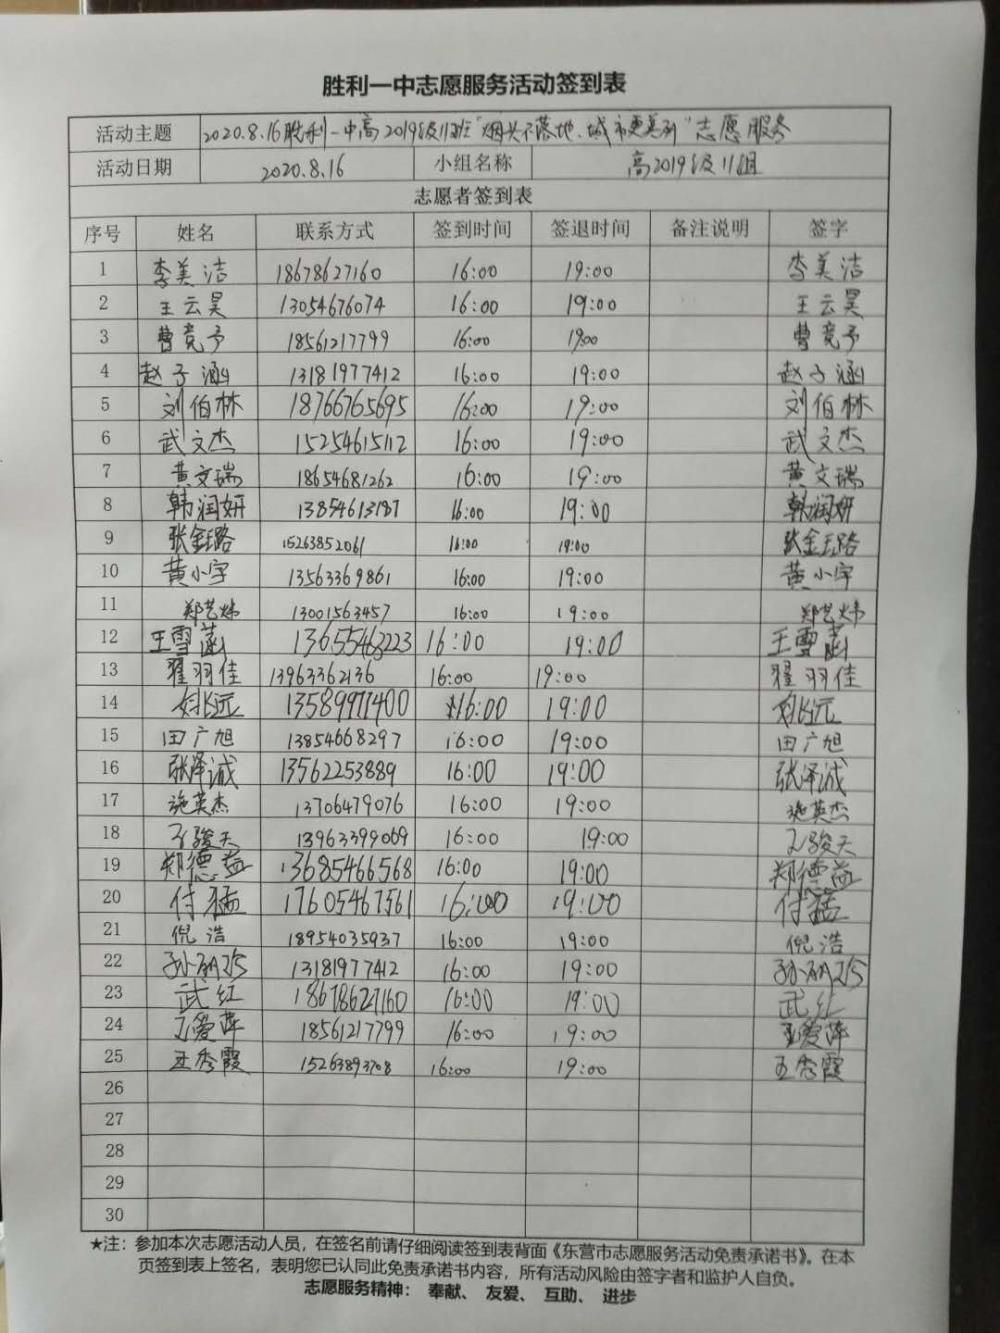 胜利一中志愿服务活动签到表
活动主题 2020.8.16胜利一中高2019级11班“烟头不落地、城市更美丽”志愿服务
活动日期 2020.8.16 小组名称 高2019级11组
志愿者签到表
序号 姓名 联系方式 签到时间 签退时间 备注说明 签字
1 李美洁 18678627160 16:00 19:00 李美洁
2 王云昊 13054676074 16:00 19:00 王云昊
3 曹竞予 18561217799 16:00 19:00 曹竞予
4 赵子涵 13181977412 16:00 19:00 赵子涵
5 刘伯林 18766765695 16:00 19:00 刘伯林
6 武文杰 15254615112 16:00 19:00 武文杰
7 黄文瑞 18654681262 16:00 19:00 黄文瑞
8 韩润妍 13854613187 16:00 19:00 韩润妍
9 张金珏路 15263852061 16:00 19:00 张金珏路
10 黄小宇 13563369861 16:00 19:00 黄小宇
11 郑艺炜 13001563457 16:00 19:00 郑艺炜
12 王雪菡 13655463223 16:00 19:00 王雪菡
13 翟羽佳 13963362136 16:00 19:00 翟羽佳
14 13589971400 16:00 19:00
15 田广旭 13854668297 16:00 19:00 田广旭
16 张泽诚 13562253889 16:00 19:00 张泽诚
17 施英杰 13706479076 16:00 19:00 施英杰
18 王骏天 13963399069 16:00 19:00 王骏天
19 郑德益 13685466568 16:00 19:00 郑德益
20 付猛 17605467561 16:00 19:00 付猛
21 倪浩 18954035937 16:00 19:00 倪浩
22 孙丽巧 13181977412 16:00 19:00 孙丽巧
23 武红 18678627160 16:00 19:00 武红
24 王爱萍 18561217799 16:00 19:00 王爱萍
25 王秀霞 15263893708 16:00 19:00 王秀霞
26
27
28
29
30
★注：参加本次志愿活动人员，在签名前请仔细阅读签到表背面《东营市志愿服务活动免责承诺书》。在本
页签到表上签名，表明您已认同此免责承诺书内容，所有活动风险由签字者和监护人自负。
志愿服务精神： 奉献、 友爱、 互助、 进步